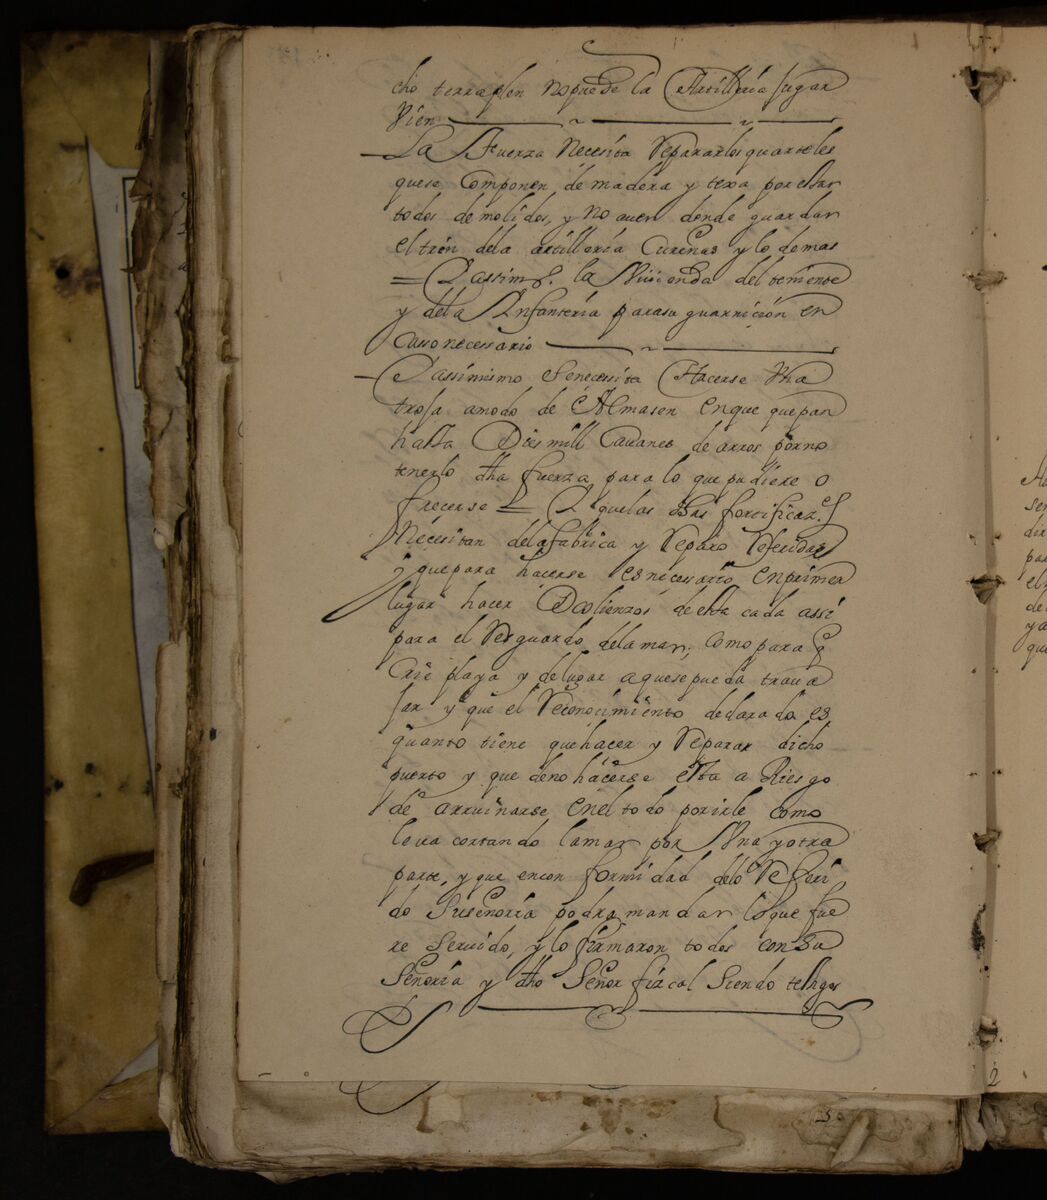 cho terraplen no puede la Artilleria Jugar
Vien
La Fuerza Necesita Reparar los quarteles
que se Componen de madera y texa por estar
todos demolidos, y no auer donde guardar
el tren dela artilleria Cureñas y lo demas
= Y assim.º la Viuienda del teniente
y dela Infanteria para su guarnicion en
Casso necessario
Y assimismo se necessita Hacerse Vna
troxa a modo de Almasen en que quepan
hasta Dies mill Cauanes de arros por no
tenerlo dha fuerza para lo que pudiere o
frecerse = Y que las dhas fortificaz.es
Necesitan dela fabrica y Reparo Referidas
y que para hacerse es necessario en primer
lugar hacer Dos lienzos de estacada assi
para el Resguardo dela mar, como para q
Crie playa y de lugar a que se pueda traua
Jar y que el Reconocimiento declarado es
quanto tiene que hacer y Reparar dicho
puerto y que de no hacerse esta a Riesgo
de arruinarse en el todo por irle como
le va cortando la mar por Vna y otra
parte, y que en conformidad delo Referi
do Su señoria podra mandar lo que fue
re Seruido, y lo firmaron todos con Su
Señoria y dho Señor fizcal Siendo testigos
2